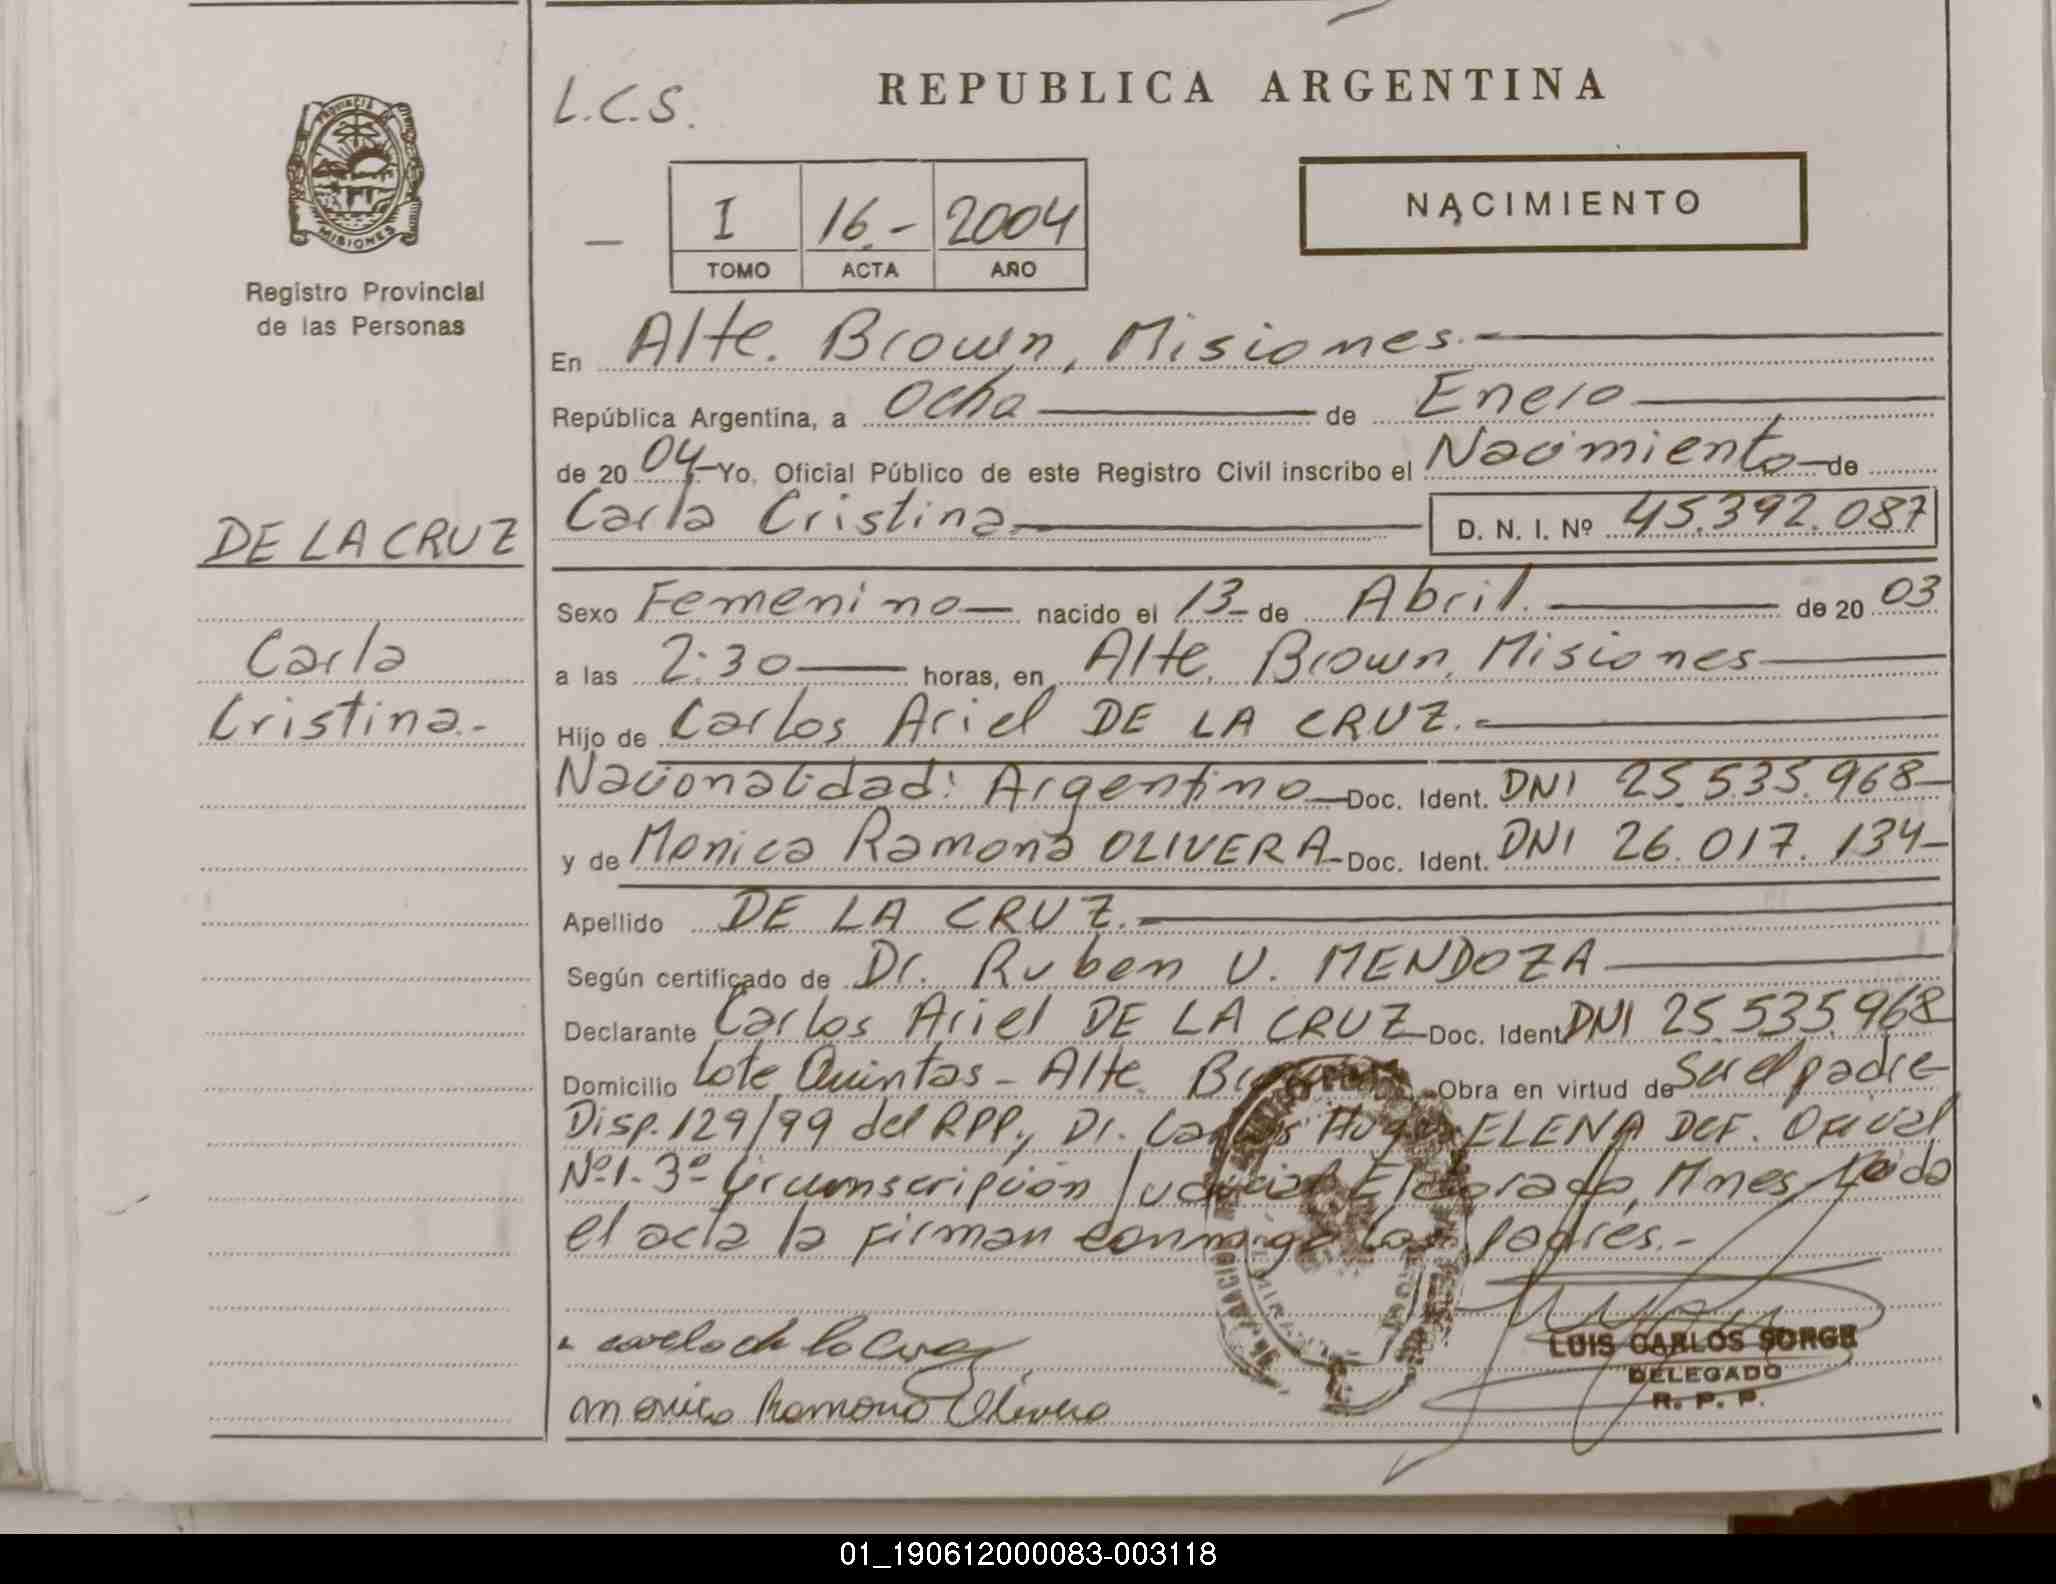 L.C.S.
REPUBLICA ARGENTINA
PROVINCIA DE
MISIONES
Registro Provincial
de las Personas
I 16.- 2004
TOMO ACTA AÑO
NACIMIENTO
En Alte. Brown, Misiones.-
República Argentina, a Ocho de Enero
de 20 04 Yo, Oficial Público de este Registro Civil inscribo el Nacimiento de
Carla Cristina D. N. I. Nº 45.392.087
DE LA CRUZ
Carla
Cristina.-
Sexo Femenino nacido el 13 de Abril. de 20 03
a las 2:30 horas, en Alte. Brown, Misiones
Hijo de Carlos Ariel DE LA CRUZ.-
Nacionalidad: Argentino Doc. Ident. DNI 25.535.968-
y de Monica Ramona OLIVERA- Doc. Ident. DNI 26.017.134-
Apellido DE LA CRUZ.-
Según certificado de Dr. Ruben V. MENDOZA
Declarante Carlos Ariel DE LA CRUZ Doc. Ident. DNI 25.535.968
Domicilio Lote Quintas - Alte. Brown Obra en virtud de Ser el padre
Disp. 129/99 del RPP., Dr. Carlos Hugo ELENA DEF. Oficial
Nº1- 3º Circunscripción Judicial Eldorado, Mnes Leida
el acta la firman conmigo los padres.-
carlo de la Cruz
Monica Ramona Olivera
LUIS CARLOS SORGE
DELEGADO
R. P. P.
01_190612000083-003118